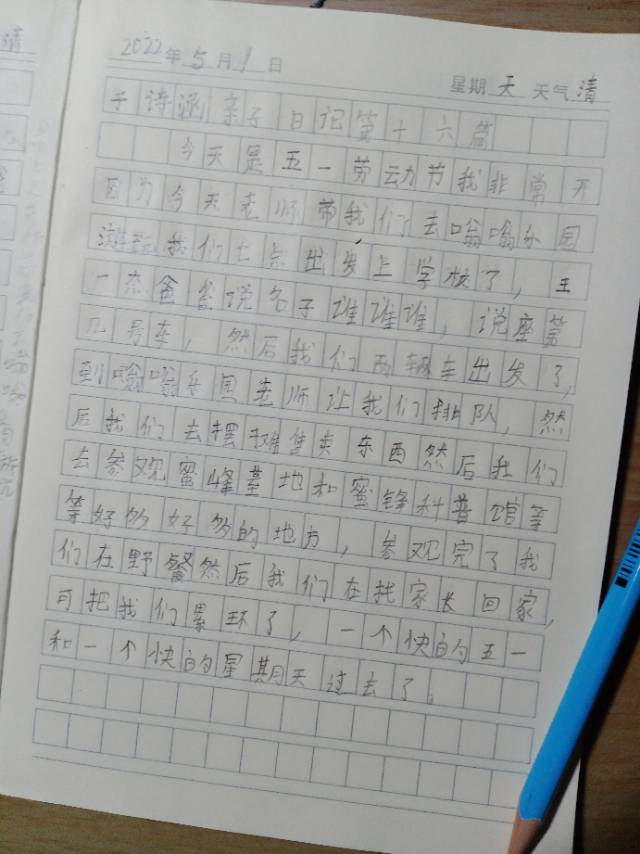 2022年5月1日
星期天 天气清
于诗涵亲子日记第十六篇
今天是五一劳动节我非常开
因为今天老师带我们去嗡嗡乐园
游玩我们七点出发上学校了，王
一态爸爸说名子谁谁谁，说座第
几号车，然后我们两辆车出发了，
到嗡嗡乐园老师让我们排队，然
后我们去摆摊售卖东西然后我们
去参观蜜峰基地和蜜锋科普馆等
等好多好多的地方，参观完了我
们在野餐然后我们在找家长回家，
可把我们累坏了，一个快的五一
和一个快的星期天过去了。